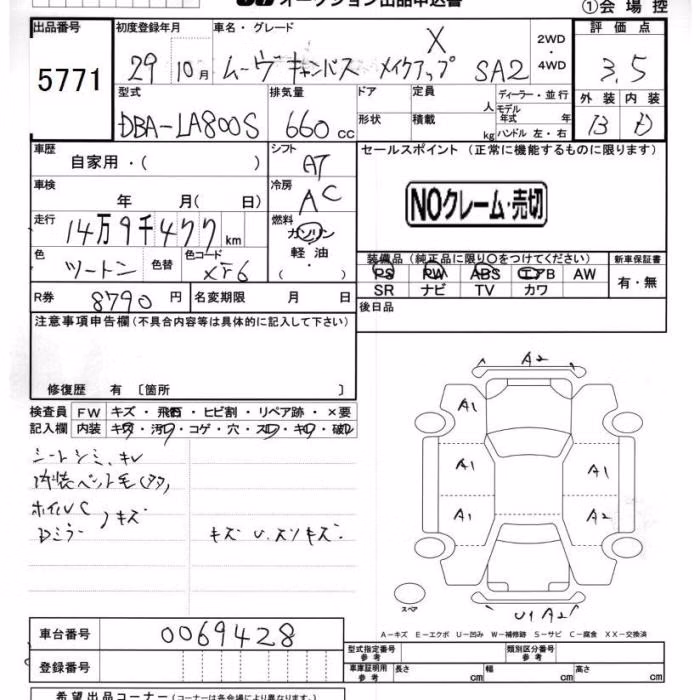 オークション出品申込書
①会場控
出品番号 5771
初度登録年月 29 10月
車名・グレード ムーヴキャンバス X メイクアップ SA2
2WD・4WD
評価点 3.5
外装 B 内装 D
型式 DBA-LA800S
排気量 660cc
ドア 定員 人 ディーラー・並行
形状 積載 kg モデル年式 年 ハンドル 左・右
車歴 自家用・( )
シフト AT
セールスポイント (正常に機能するものに限ります)
車検 年 月( 日)
冷房 AC
NOクレーム・売切
走行 14万9千477km
燃料 ガソリン 軽油・( )
色 ツートン 色替 色コード XF6
装備品(純正品に限り○をつけてください) 新車保証書
PS PW ABS エアB AW 有・無
SR ナビ TV カワ
R券 8790円 名変期限 月 日
後日品
注意事項申告欄(不具合内容等は具体的に記入して下さい)
修復歴 有〔箇所 〕
検査員 FW キズ・飛石・ヒビ割・リペア跡・×要
記入欄 内装 キズ・汚・コゲ・穴・スレ・キレ・破
シートシミ、キレ
内装ペット毛(タタ)
ホイルC
Dミラー
)キズ
キズ U.スリキズ.
A2
A1
A1 A1
A1 A2
U1 A2
スペア
A-キズ E-エクボ U-凹み W-補修跡 S-サビ C-腐食 XX-交換済
車台番号 0069428
型式指定番号参考 類別区分番号参考
登録番号
車庫証明用参考 長さ cm 幅 cm 高さ cm
希望出品コーナー(コーナーは各会場により異なります)